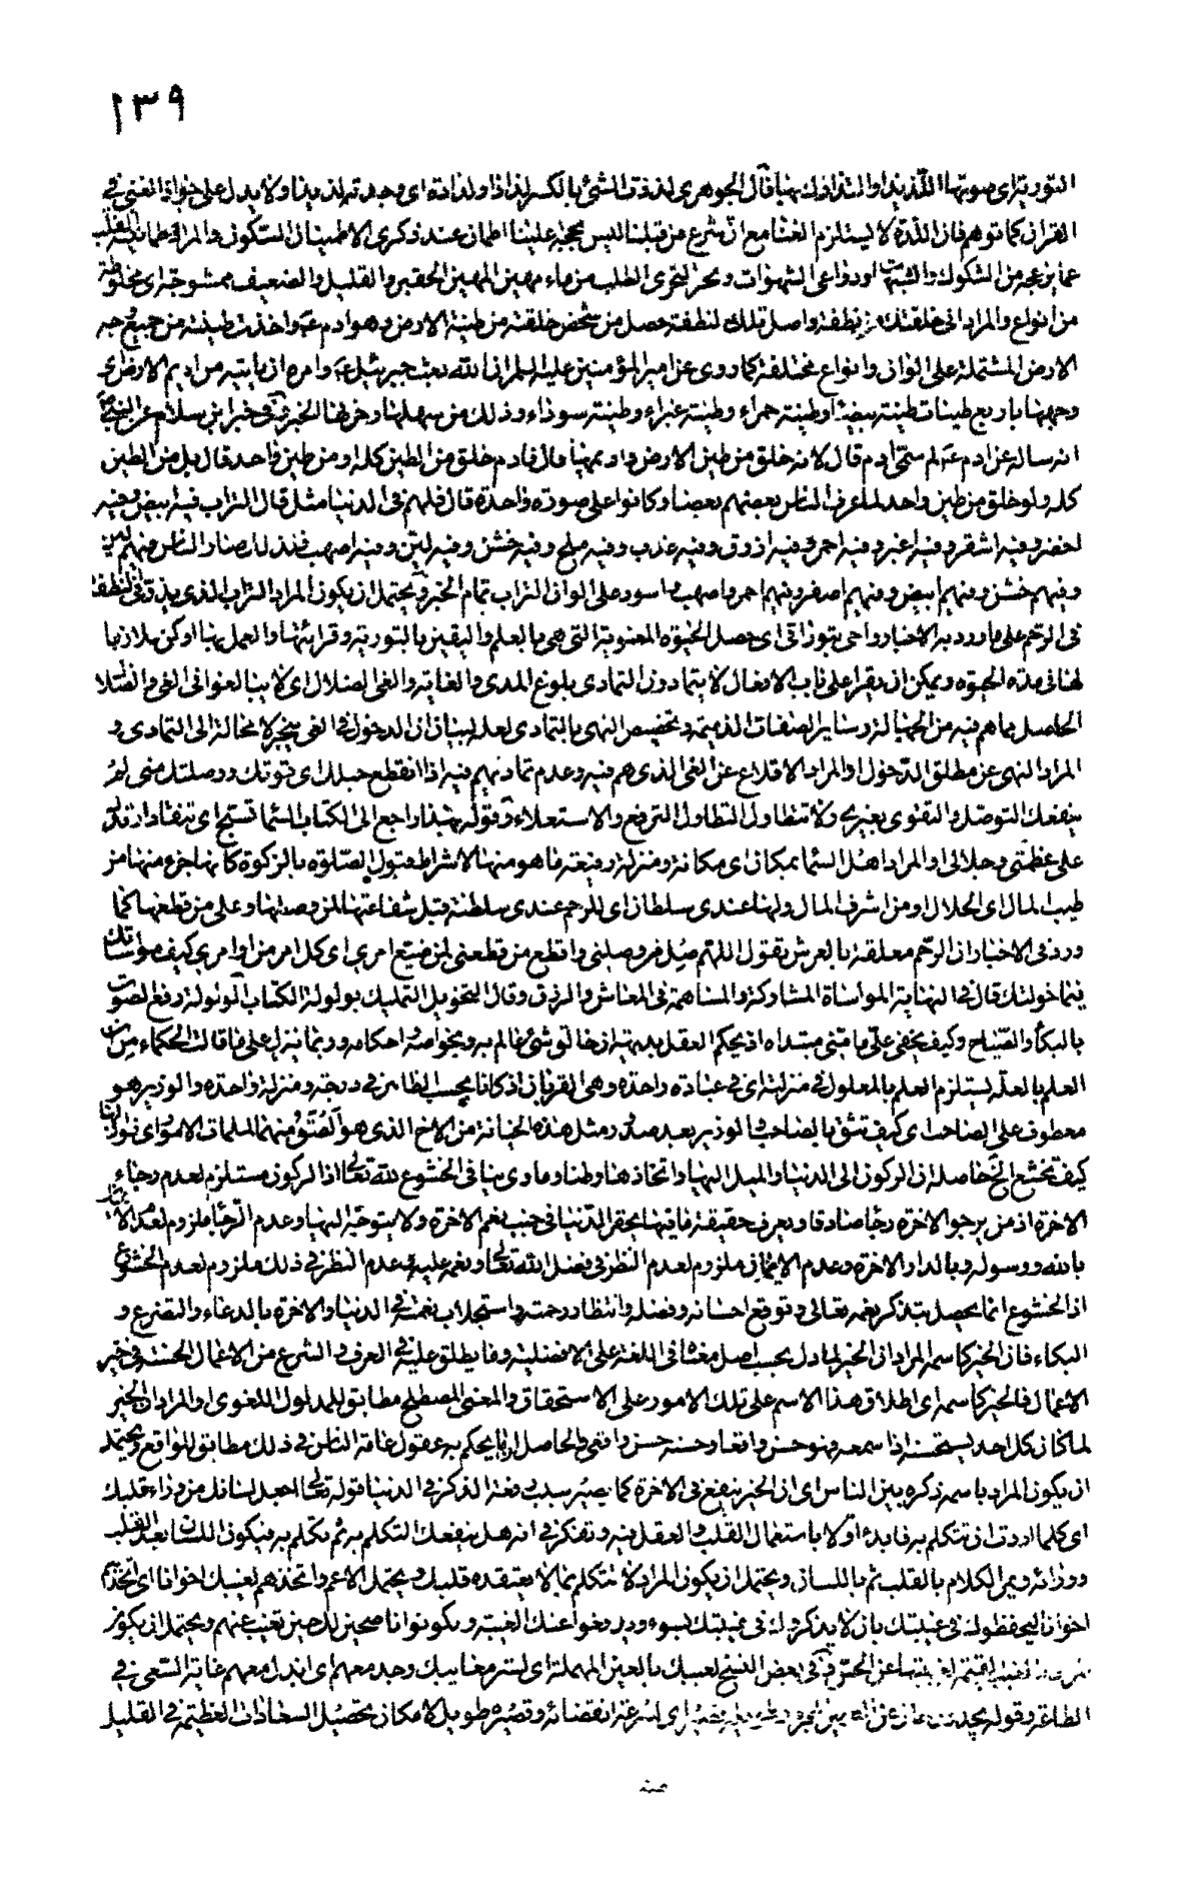 ١٣٩
التورية اى صوتها اللذيذ او التذاذك بها قال الجوهرى لذذت الشئ بالكسر لذاذا ولذاذة اى وجدته لذيذا ولا يدل على جواز التغنى فى
القرآن كما توهم فان اللذة لا يستلزم الغناء مع ان شرع من قبلنا ليس بحجة علينا اطمان عند ذكرى الاطمينان السكون والمراد طمانينة القلب
عما يزعجه من الشكوك والشبهات او دواعى الشهوات وتحر التحرى الطلب من ماء مهين المهين الحقير والقليل والضعيف ممشوجة اى مخلوطة
من انواع والمراد انى خلقتك من نطفة واصل تلك النطفة حصل من شخص خلقته من طينة الارض وهو ادم ع واخذت طينته من جميع وجه
الارض المشتملة على الوان وانواع مختلفة كما روى عن امير المؤمنين عليه السلم ان الله بعث جبرئيل ع وامره ان ياتيه من اديم الارض اى
وجهها باربع طينات طينة بيضاء وطينة حمراء وطينة غبراء وطينة سوداء وذلك من سهلها وحزنها الخبر وفى خبر ابن سلام عن النبى ص
انه ساله عن ادم ع لم سمى ادم قال لانه خلق من طين الارض واديمها قال فادم خلق من الطين كله او من طين واحد قال بل من الطين
كله ولو خلق من طين واحد لما عرف الناس بعضهم بعضا وكانوا على صورة واحدة قال فلهم فى الدنيا مثل قال التراب فيه ابيض وفيه
اخضر وفيه اشقر وفيه اغبر وفيه احمر وفيه ازرق وفيه عذب وفيه ملح وفيه خشن وفيه لين وفيه اصهب فلذلك صار الناس فيهم لين
وفيهم خشن وفيهم ابيض وفيهم اصفر وفيهم احمر واصهب واسود على الوان التراب تمام الخبر ويحتمل ان يكون المراد التراب الذى يذر فى النطفة
فى الرحم على ما ورد به الاخبار واحى بتوراتى اى حصل الحيوة المعنوية التى هى بالعلم واليقين بالتورية وقرائتها والعمل بها او كن ملازما
لها فى مدة الحيوة ويمكن ان يقرا على باب الافعال لا يتمادون التمادى بلوغ المدى والغاية والغى الضلال اى لا يبالغوا فى الغى والضلال
الحاصل بما هم فيه من الجهالة وساير الصفات الذميمة وتخصيص النهى بالتمادى لعله لبيان ان الدخول فى الغى ينجر لا محالة الى التمادى و
المراد النهى عن مطلق الدخول او المراد الاقلاع عن الغى الذى هم فيه وعدم تماديهم فيه اذا انقطع حبلك اى قوتك ووصلتك منى لم
ينفعك التوصل والتقوى بغيرى ولا تتطاول التطاول الترفع والاستعلاء وقوله بهذا راجع الى الكتاب السما تستبح اى تنقاد او تدل
على عظمتى وجلالى او المراد اهل السما بمكان اى مكانة ومنزلة رفيعة فاهو منها لاشراط قبول الصلوة بالزكوة كانها جزء منها من
طيب المال اى الحلال او من اشرف المال ولها عندى سلطان اى للرحم عندى سلطنة قبل شفاعتها لمن وصلها وعلى من قطعها كما
ورد فى الاخبار ان الرحم معلقة بالعرش تقول اللهم صل من وصلنى واقطع من قطعنى لمن ضيع امرى اى كل امر من اوامرى كيف مواساتك
فيما خولتك قال فى النهاية المواساة المشاركة والمساهمة فى المعاش والرزق وقال التخويل التمليك بولولة الكتاب الولولة رفع الصوت
بالبكاء والصياح وكيف يخفى على ما منى مبتداه اذ يحكم العقل بديهة ان خالق شئ عالم به وبخواصه واحكامه وربما ينزل على ما قالت الحكماء من ان
العلم بالعلة يستلزم العلم بالمعلول فى منزلة اى فى عبادة واحدة وهى القربان اذ كانا بحسب الظاهر فى درجة ومنزلة واحدة والوزير هو
معطوف على الصاحب اى كيف تثق بالصاحب والوزير بعد صدور مثل هذه الخيانة من الاخ الذى هو الصق منهما
كيف تخشع الخ حاصله ان الركون الى الدنيا والميل اليها واتخاذها وطنا وماوى ينافى الخشوع لله تعالى اذ الركون مستلزم لعدم رجاء
الاخرة اذ من يرجو الاخرة رجاء صادقا ويعرف حقيقة ما فيها يحقر الدنيا فى جنب نعم الاخرة ولا يتوجه اليها وعدم الرجاء ملزوم لعدم الايمان
بالله ورسوله وبالدار الاخرة وعدم الايمان ملزوم لعدم النظر فى فضل الله تعالى ونعمه عليه وعدم النظر فى ذلك ملزوم لعدم الخشوع
اذ الخشوع انما يحصل بتذكر نعمه تعالى وتوقع احسانه وفضله وانتظار رحمته واستجلاب نعمته فى الدنيا والاخرة بالدعاء والتضرع و
البكاء فان الخير كاسمه المراد ان الخير لما دل بحسب اصل معناه فى اللغة على الافضلية وما يطلق عليه فى العرف والشرع من الاعمال الحسنة هى خير
الاعمال فالخير كاسمه اى اطلاق هذا الاسم على تلك الامور على الاستحقاق والمعنى المصطلح مطابق للمدلول اللغوى او المراد ان الخير
لما كان كل احد يستحسنه اذا سمعه فهو حسن واقعا وحسنه حسن واقعى والحاصل ان ما يحكم به عقول عامة الناس فى ذلك مطابق للواقع ويحتمل
ان يكون المراد باسمه ذكره بين الناس اى ان الخير ينفع فى الاخرة كما يصير سبب رفعة الذكر فى الدنيا قوله تعالى اجعل لسانك من وراء قلبك
اى كلما اردت ان تتكلم به فابدء اولا باستعمال القلب والعقل فيه وتفكر فى انه هل ينفعك التكلم به ثم تكلم به فيكون اللسان بعد القلب
وورائه ويمر الكلام بالقلب ثم باللسان ويحتمل ان يكون المراد لا تتكلم بما لا يعتقده قلبك ويحتمل الاعم واتخذهم لغيبك اخوانا اى اتخذهم
اخوانا ليحفظوك فى غيبتك بان لا يذكروك فى غيبتك بسوء ويدفعوا عنك الغيبة ويكونوا ناصحين لك حين تغيب عنهم ويحتمل ان يكون
عن الحق وفى بعض النسخ لعيبك بالعين المهملة اى لستر معايبك وجد معهم اى ابذل معهم غاية السعى فى
الطاعة وقوله اى لسرعة انقضائه وقصره طويل لامكان تحصيل السعادات العظيمة فى القليل
منه